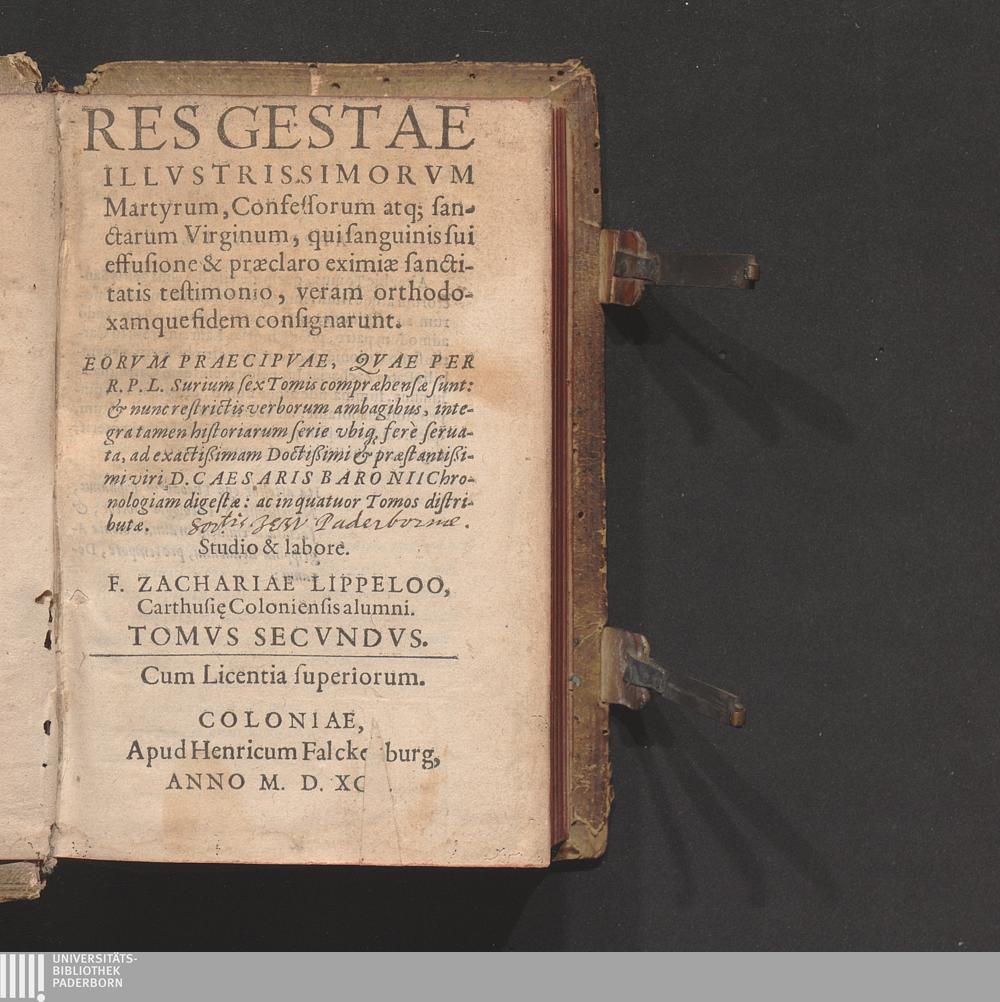 RES GESTAE
ILLVSTRISSIMORVM
Martyrum, Confeſſorum atq; ſan-
ctarum Virginum, qui ſanguinis ſui
effuſione & præclaro eximiæ ſancti-
tatis teſtimonio, veram orthodo-
xamque fidem conſignarunt.
EORVM PRAECIPVAE, QVAE PER
R. P. L. Surium ſex Tomis compræhenſæ ſunt:
& nunc reſtrictis verborum ambagibus, inte-
gra tamen hiſtoriarum ſerie vbiq, ferè ſerua-
ta, ad exactißimam Doctißimi & præſtantißi-
mi viri D. CAESARIS BARONII Chro-
nologiam digeſtæ: ac in quatuor Tomos diſtri-
butæ. Sortis Jesu Paderbornæ.
Studio & labore.
F. ZACHARIAE LIPPELOO,
Carthuſię Colonienſis alumni.
TOMVS SECVNDVS.
Cum Licentia ſuperiorum.
COLONIAE,
Apud Henricum Falcke burg,
ANNO M. D. XC
UNIVERSITÄTS-
BIBLIOTHEK
PADERBORN